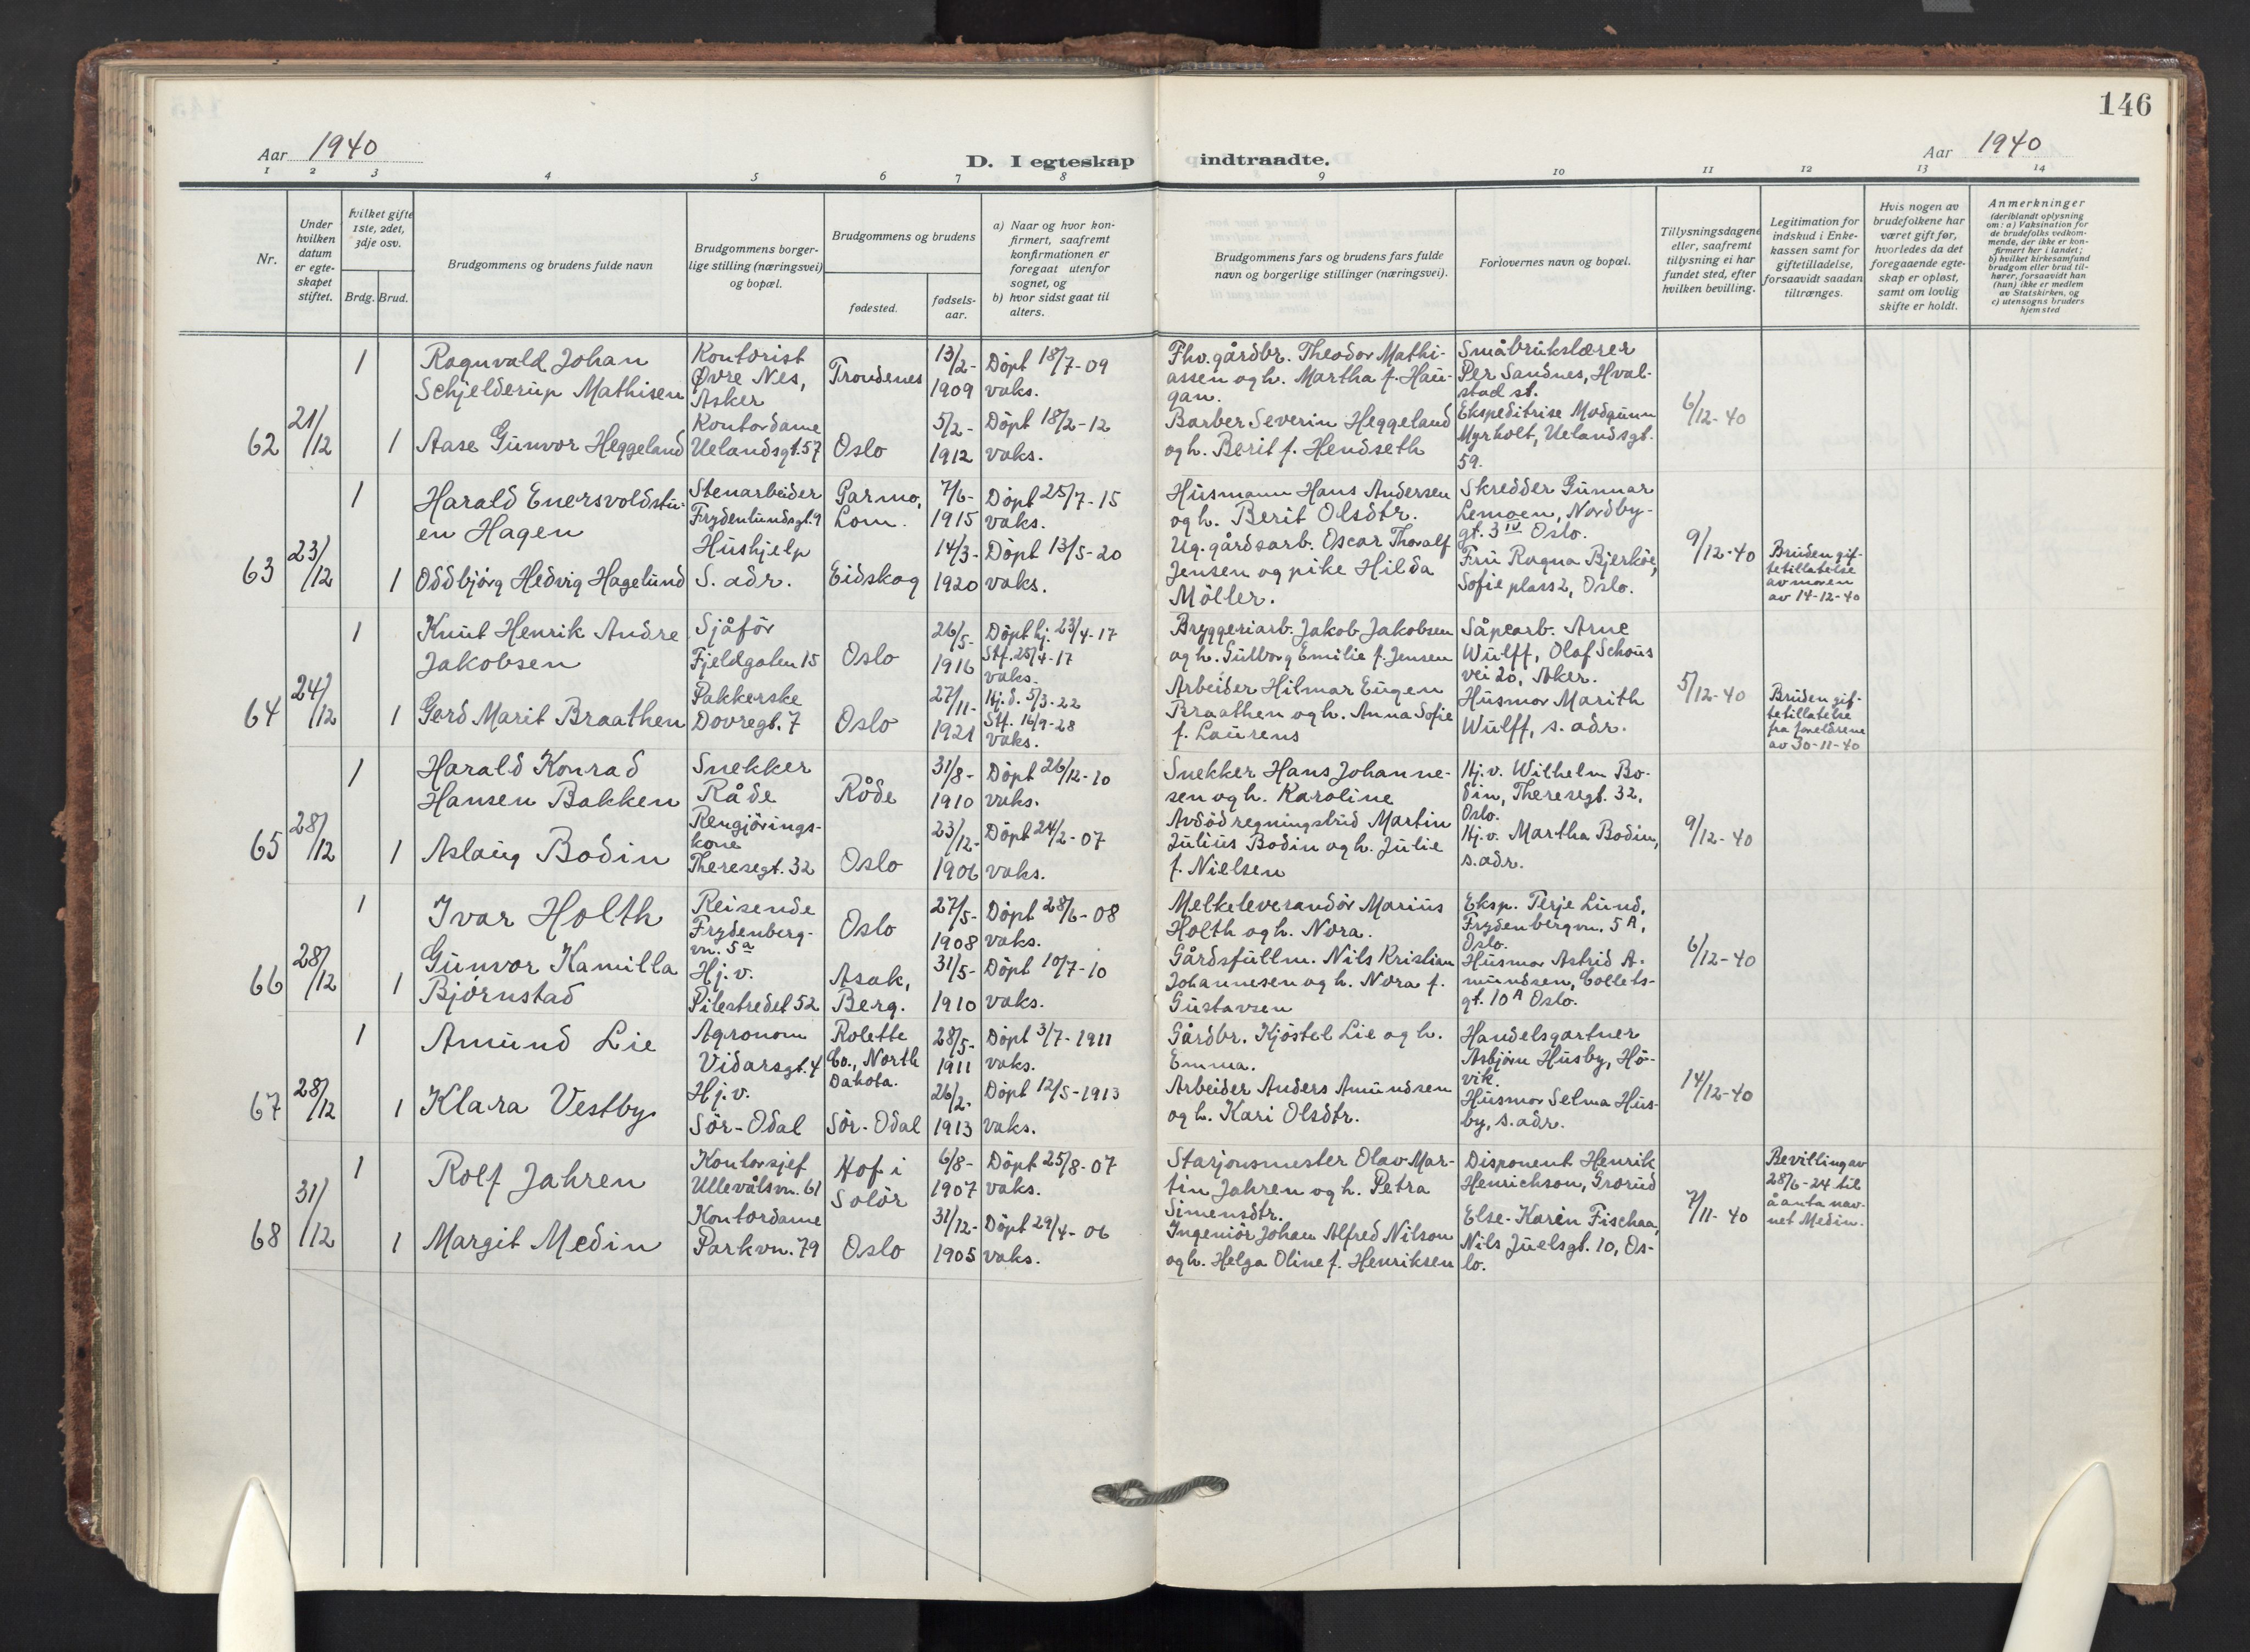 146
Aar 1940
D. I egteskap indtraadte.
Aar 1940
1 2 3 4 5 6 7 8 9 10 11 12 13 14
Nr.
Under hvilken datum er egteskapet stiftet.
hvilket gifte 1ste, 2det, 3dje osv.
Brdg. Brud.
Brudgommens og brudens fulde navn
Brudgommens borgerlige stilling (næringsvei) og bopæl.
Brudgommens og brudens
fødested.
fødselsaar.
a) Naar og hvor konfirmert, saafremt konfirmationen er foregaat utenfor sognet, og
b) hvor sidst gaat til alters.
Brudgommens fars og brudens fars fulde navn og borgerlige stillinger (næringsvei).
Forlovernes navn og bopæl.
Tillysningsdagene eller, saafremt tillysning ei har fundet sted, efter hvilken bevilling.
Legitimation for indskud i Enkekassen samt for giftetilladelse, forsaavidt saadan tiltrænges.
Hvis nogen av brudefolkene har været gift før, hvorledes da det foregaaende egteskap er opløst, samt om lovlig skifte er holdt.
Anmerkninger
(deriblandt oplysning om: a) Vaksination for de brudefolks vedkommende, der ikke er konfirmert her i landet; b) hvilket kirkesamfund brudgom eller brud tilhører, forsaavidt han (hun) ikke er medlem av Statskirken, og c) utensogns bruders hjemsted
62
21/12
1
Ragnvald Johan
Schjelderup Mathisen
Kontorist
Øvre Nes,
Asker
Trondenes
13/2-
1909
Döpt 18/7-09
vaks.
Fhv. gårdbr. Theodor Mathi-
assen og h. Martha f. Hau-
gan.
Småbrukslærer
Per Sandnes, Hval-
stad st.
6/12-40
1
Aase Gunvor Heggeland
Kontordame
Uelandsgt. 57
Oslo
5/2-
1912
Döpt 18/2-12
vaks.
Barber Severin Heggeland
og h. Berit f. Hendseth
Ekspeditrise Modgunn
Myrholt, Uelandsgt.
59.
63
23/12
1
Harald Enersvoldstu-
en Hagen
Stenarbeider
Frydenlundsgt. 9
Garmo,
Lom.
7/6-
1915
Döpt 25/7-15
vaks.
Husmann Hans Andersen
og h. Berit Olsdtr.
Skredder Gunnar
Lemoen, Nordby-
gt. 3 IV Oslo.
9/12-40
1
Oddbjörg Hedvig Hagelund
Hushjelp
S. adr.
Eidskog
14/3-
1920
Döpt 13/5-20
vaks.
Ug. gårdsarb. Oscar Thoralf
Jensen og pike Hilda
Möller.
Fru Ragna Bjerköe,
Sofie plass 2, Oslo.
Bruden gif-
tetillatelse
av moren
av 14-12-40
64
24/12
1
Knut Henrik Andre
Jakobsen
Sjåför
Fjeldgaten 15
Oslo
26/5-
1916
Döpt hj. 23/4-17
Stf. 25/4-17
vaks.
Bryggeriarb. Jakob Jakobsen
og h. Gulborg Emilie f. Jensen
Såpearb. Arne
Wulff, Olaf Schous
vei 20, Aker.
5/12-40
1
Gerd Marit Braathen
Pakkerske
Dovregt. 7
Oslo
27/11-
1921
Hj. d. 5/3-22
Stf. 16/9-28
vaks.
Arbeider Hilmar Eugen
Braathen og h. Anna Sofie
f. Laurens
Husmor Marith
Wulff, s. adr.
Bruden gif-
tetillatelse
fra foreldrene
av 30-11-40
65
28/12
1
Harald Konrad
Hansen Bakken
Snekker
Råde
Råde
31/8-
1910
Döpt 26/12-10
vaks.
Snekker Hans Johanne-
sen og h. Karoline
Hj. v. Wilhelm Bo-
din, Theresegt. 32,
Oslo.
9/12-40
1
Aslaug Bodin
Rengjörings-
kone
Theresegt. 32
Oslo
23/12-
1906
Döpt 24/2-07
vaks.
Avdöd regningsbud Martin
Julius Bodin og h. Julie
f. Nielsen
Hj. v. Martha Bodin,
s. adr.
66
28/12
1
Ivar Holth
Reisende
Frydenberg-
vn. 5a
Oslo
27/5-
1908
Döpt 28/6-08
vaks.
Melkeleverandör Marius
Holth og h. Nora.
Eksp. Terje Lund,
Frydenbergvn. 5 A,
Oslo.
6/12-40
1
Gunvor Kamilla
Björnstad
Hj. v.
Pilestredet 52
Asak,
Berg.
31/5-
1910
Döpt 10/7-10
vaks.
Gårdsfullm. Nils Kristian
Johannesen og h. Nora f.
Gustavsen
Husmor Astrid A-
mundsen, Collets-
gt. 10 A Oslo.
67
28/12
1
Amund Lie
Agronom
Vidarsgt. 4
Rolette
Co., North
Dakota.
28/5-
1911
Döpt 3/7-1911
vaks.
Gårdbr. Kjöstel Lie og h.
Emma.
Handelsgartner
Asbjörn Husby, Hö-
vik.
14/12-40
1
Klara Vestby
Hj. v.
Sör-Odal
Sör-Odal
26/2-
1913
Döpt 12/5-1913
vaks.
Arbeider Anders Amundsen
og h. Kari Olsdtr.
Husmor Selma Hus-
by, s. adr.
68
31/12
1
Rolf Jahren
Kontorsjef
Ullevålsvn. 61
Hof i
Solör
6/8-
1907
Döpt 25/8-07
vaks.
Stasjonsmester Olav Mar-
tin Jahren og h. Petra
Simensdtr.
Disponent Henrik
Henrichson, Grorud
7/11-40
Bevilling av
28/6-24 til
å anta nav-
net Medin.
1
Margit Medin
Kontordame
Parkvn. 79
Oslo
31/12-
1905
Döpt 29/4-06
vaks.
Ingeniör Johan Alfred Nilson
og h. Helga Oline f. Henriksen
Else-Karen Fischaa,
Nils Juelsgt. 10, Os-
lo.